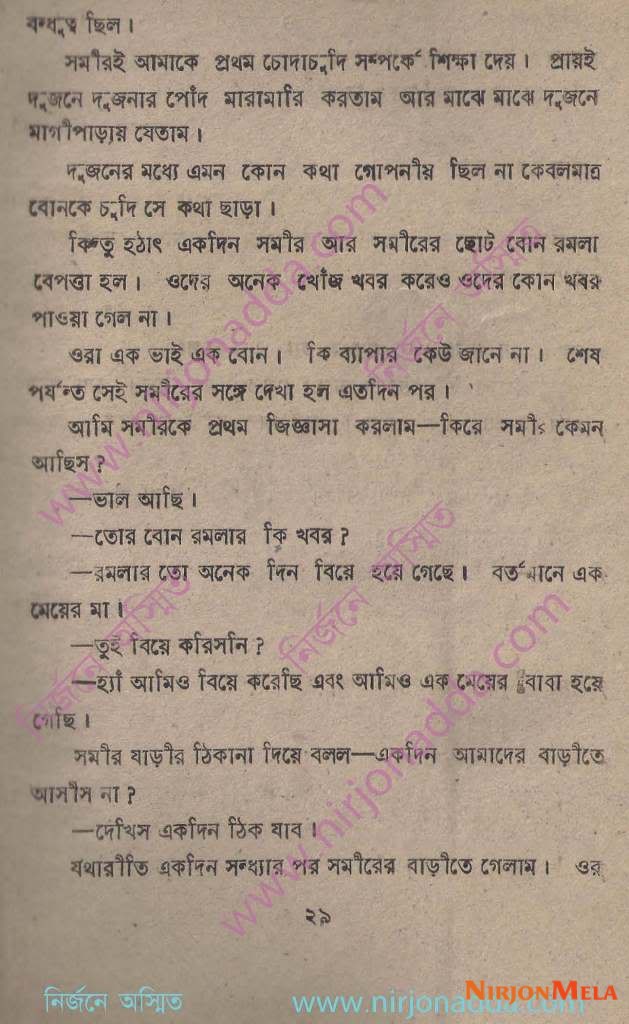 বন্ধুত্ব ছিল।
সমীরই আমাকে প্রথম চোদাচুদি সম্পর্কে শিক্ষা দেয়। প্রায়ই
দুজনে দুজনার পোঁদ মারামারি করতাম আর মাঝে মাঝে দুজনে
মাগীপাড়ায় যেতাম।
দুজনের মধ্যে এমন কোন কথা গোপনীয় ছিল না কেবলমাত্র
বোনকে চুদি সে কথা ছাড়া।
কিন্তু হঠাৎ একদিন সমীর আর সমীরের ছোট বোন রমলা
বেপত্তা হল। ওদের অনেক খোঁজ খবর করেও ওদের কোন খবর
পাওয়া গেল না।
ওরা এক ভাই এক বোন। কি ব্যাপার কেউ জানে না। শেষ
পর্যন্ত সেই সমীরের সঙ্গে দেখা হল এতদিন পর।
আমি সমীরকে প্রথম জিজ্ঞাসা করলাম—কিরে সমীর কেমন
আছিস?
—ভাল আছি।
—তোর বোন রমলার কি খবর?
—রমলার তো অনেক দিন বিয়ে হয়ে গেছে। বর্তমানে এক
মেয়ের মা।
—তুই বিয়ে করিসনি?
—হ্যাঁ আমিও বিয়ে করেছি এবং আমিও এক মেয়ের বাবা হয়ে
গেছি।
সমীর বাড়ীর ঠিকানা দিয়ে বলল—একদিন আমাদের বাড়ীতে
আসীস না?
—দেখিস একদিন ঠিক যাব।
যথারীতি একদিন সন্ধ্যার পর সমীরের বাড়ীতে গেলাম। ওর
২৯
www.nirjonadda.com
নির্জনে অস্মিত
নির্জনে অস্মিত
নির্জনে অস্মিত
www.nirjonadda.com
নির্জনে অস্মিত
www.nirjonadda.com
NIRJONMELA